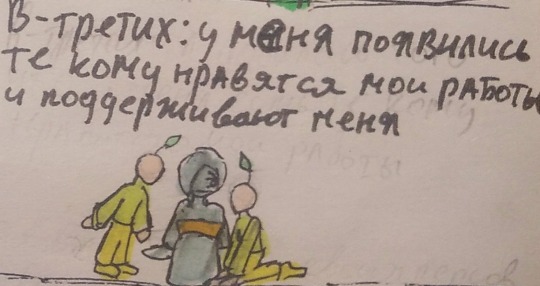 В-третих: у меня появились
те кому нравятся мои работы
и поддерживают меня